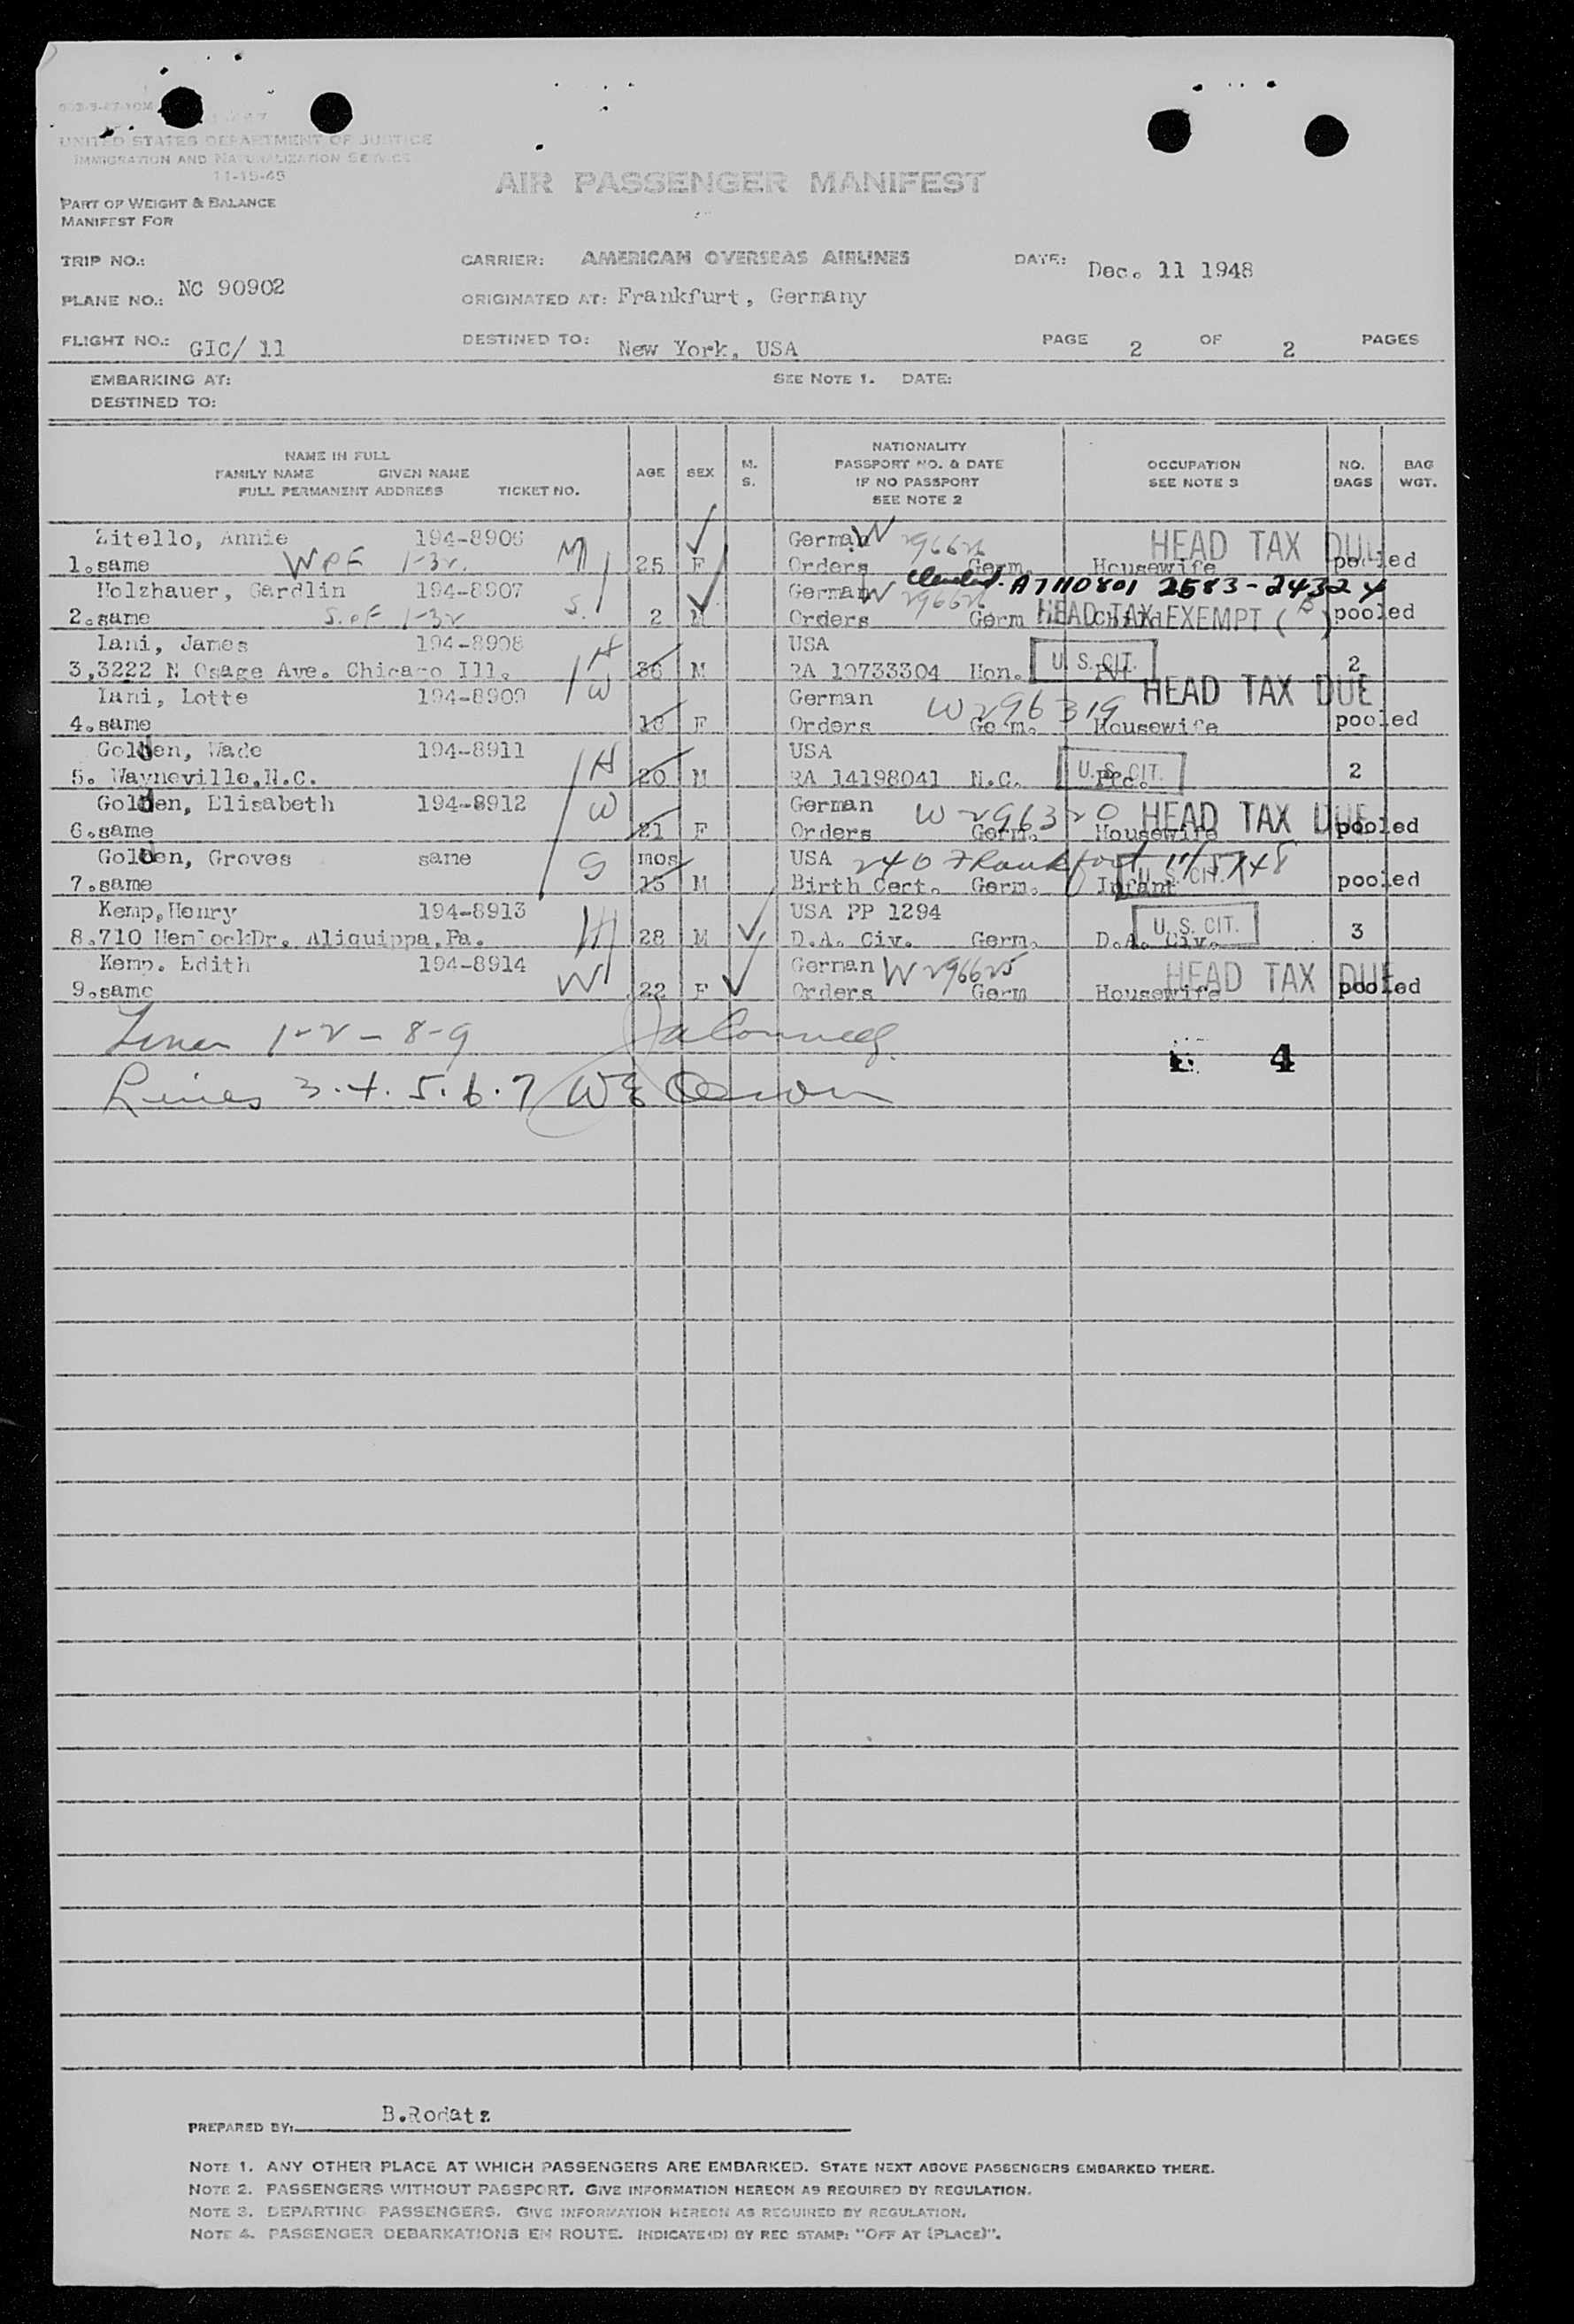 UNITED STATES DEPARTMENT OF JUSTICE
IMMIGRATION AND NATURALIZATION SERVICE
11-15-45
AIR PASSENGER MANIFEST
PART OF WEIGHT & BALANCE
MANIFEST FOR
TRIP NO.: CARRIER: AMERICAN OVERSEAS AIRLINES DATE: Dec. 11 1948
PLANE NO.: NC 90902 ORIGINATED AT: Frankfurt, Germany
FLIGHT NO.: GIC/ 11 DESTINED TO: New York, USA PAGE 2 OF 2 PAGES
EMBARKING AT: SEE NOTE 1. DATE:
DESTINED TO:
NAME IN FULL
FAMILY NAME GIVEN NAME
FULL PERMANENT ADDRESS TICKET NO.
AGE SEX M. S.
NATIONALITY
PASSPORT NO. & DATE
IF NO PASSPORT
SEE NOTE 2
OCCUPATION
SEE NOTE 3
NO. BAGS
BAG WGT.
Zitello, Annie 194-8906 German W 296626 HEAD TAX DUE
1.same WPE 1-3r. M 25 F Orders Germ. Housewife pooled
Holzhauer, Gardlin 194-8907 German W 296626 A7110801 2583-24324
2.same S.PF 1-3r S. 2 M Orders Germ Child HEAD TAX EXEMPT pooled
Iani, James 194-8908 H USA U. S. CIT.
3,3222 N Osage Ave. Chicago Ill. 36 M RA 10733304 Hon. Pvt 2
Iani, Lotte 194-8909 W German W 296319 HEAD TAX DUE
4.same 19 F Orders Germ. Housewife pooled
Golden, Wade 194-8911 H USA U. S. CIT.
5. Wayneville,N.C. 20 M RA 14198041 N.C. Pfc. 2
Golden, Elisabeth 194-8912 W German W 296320 HEAD TAX DUE
6.same 21 F Orders Germ. Housewife pooled
Golden, Groves same S mos USA 240 Frankfort 11/5/48 U. S. CIT.
7.same 15 M Birth Cert. Germ. Infant pooled
Kemp,Henry 194-8913 USA PP 1294 U. S. CIT.
8.710 HemlockDr. Aliquippa,Pa. H 28 M D.A. Civ. Germ. D.A. Civ. 3
Kemp. Edith 194-8914 German W 296625 HEAD TAX DUE
9.same W 22 F Orders Germ Housewife pooled
Lines 1-2-8-9
4
Lines 3.4.5.6.7
PREPARED BY: B.Rodatz
NOTE 1. ANY OTHER PLACE AT WHICH PASSENGERS ARE EMBARKED. STATE NEXT ABOVE PASSENGERS EMBARKED THERE.
NOTE 2. PASSENGERS WITHOUT PASSPORT. GIVE INFORMATION HEREON AS REQUIRED BY REGULATION.
NOTE 3. DEPARTING PASSENGERS. GIVE INFORMATION HEREON AS REQUIRED BY REGULATION.
NOTE 4. PASSENGER DEBARKATIONS EN ROUTE. INDICATE(D) BY REC STAMP: "OFF AT (PLACE)".